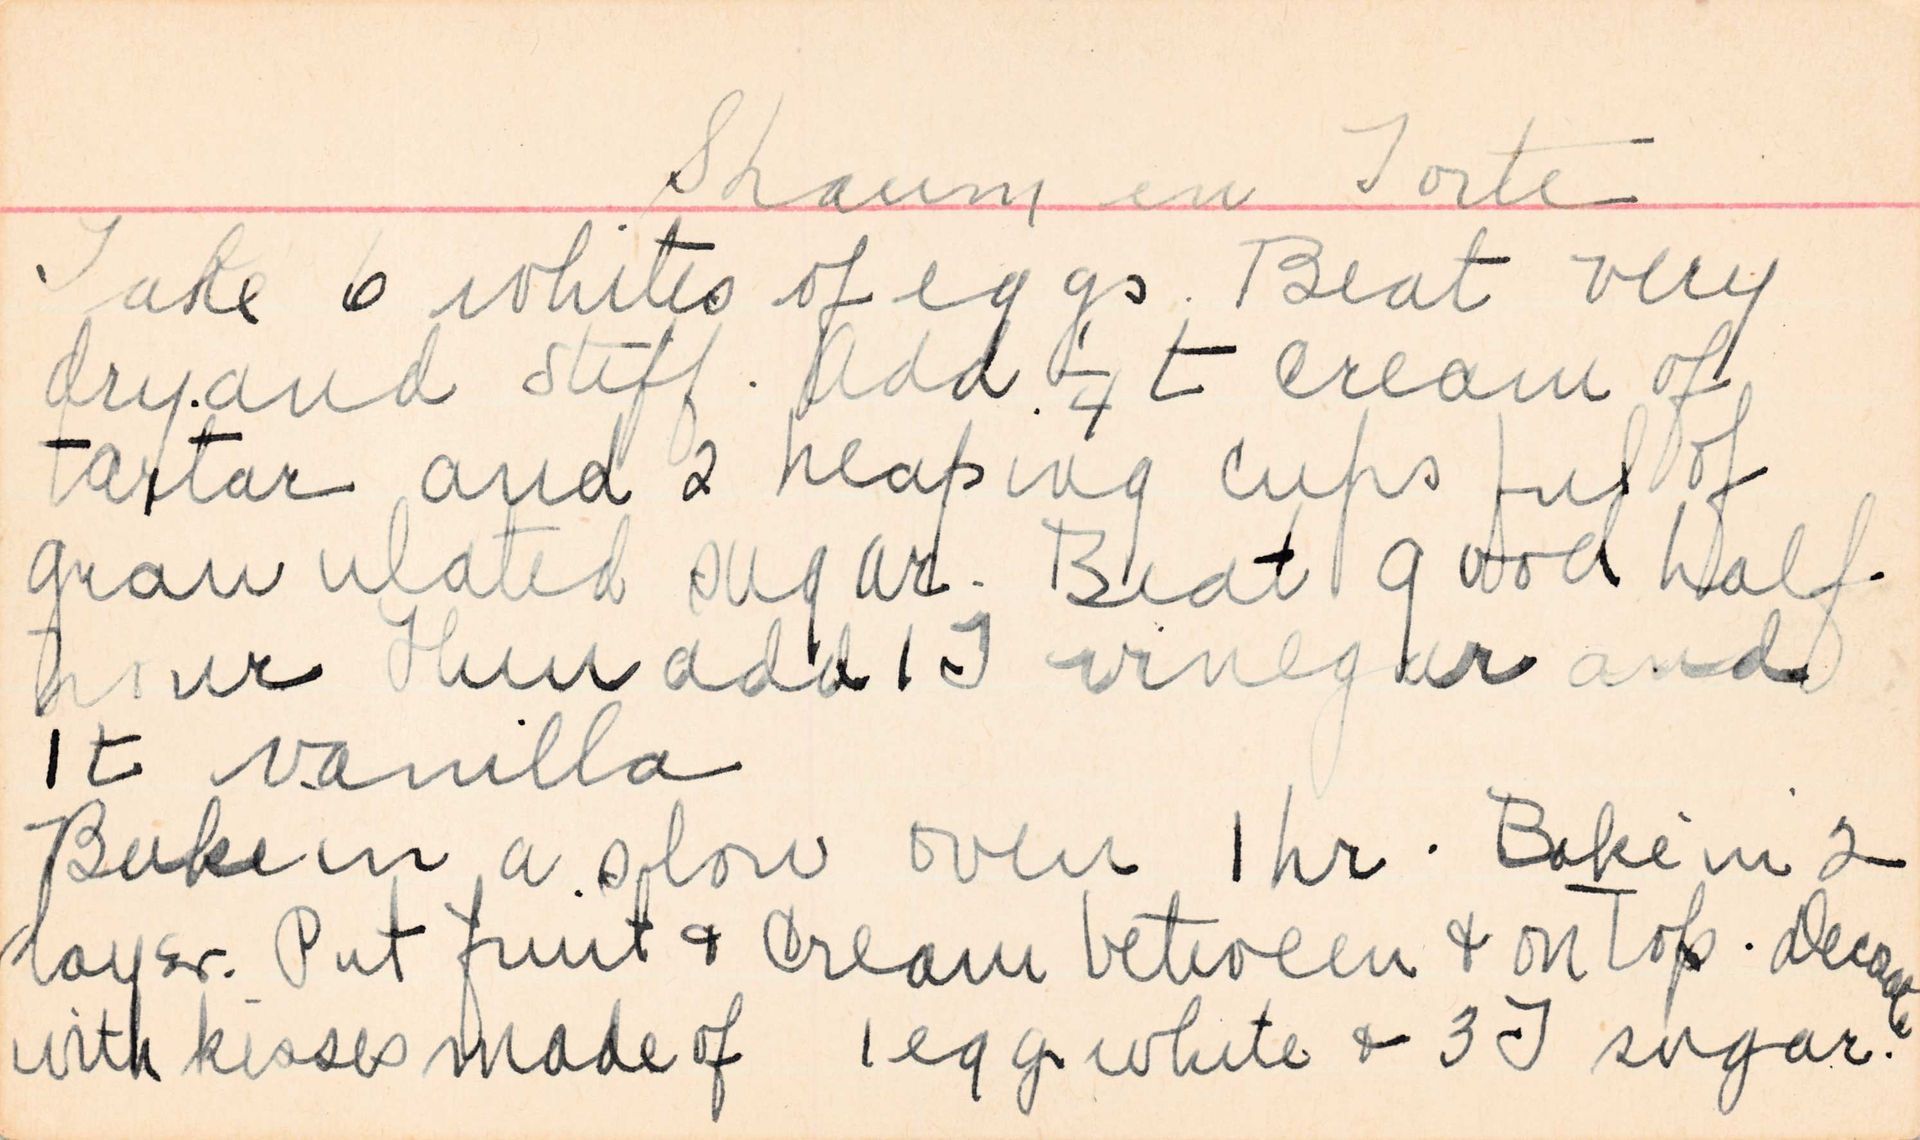 Shaum en Torte
Take 6 whites of eggs. Beat very
dry and stiff. Add 1/4 t cream of
tartar and 2 heaping cups ful of
granulated sugar. Beat good half
hour Then add 1 T vinegar and
1 t vanilla
Bake in a slow oven 1 hr. Bake in 2
layer. Put fruit & Cream between & on Top. Decorate
with kisses made of 1 egg white & 3 T sugar.